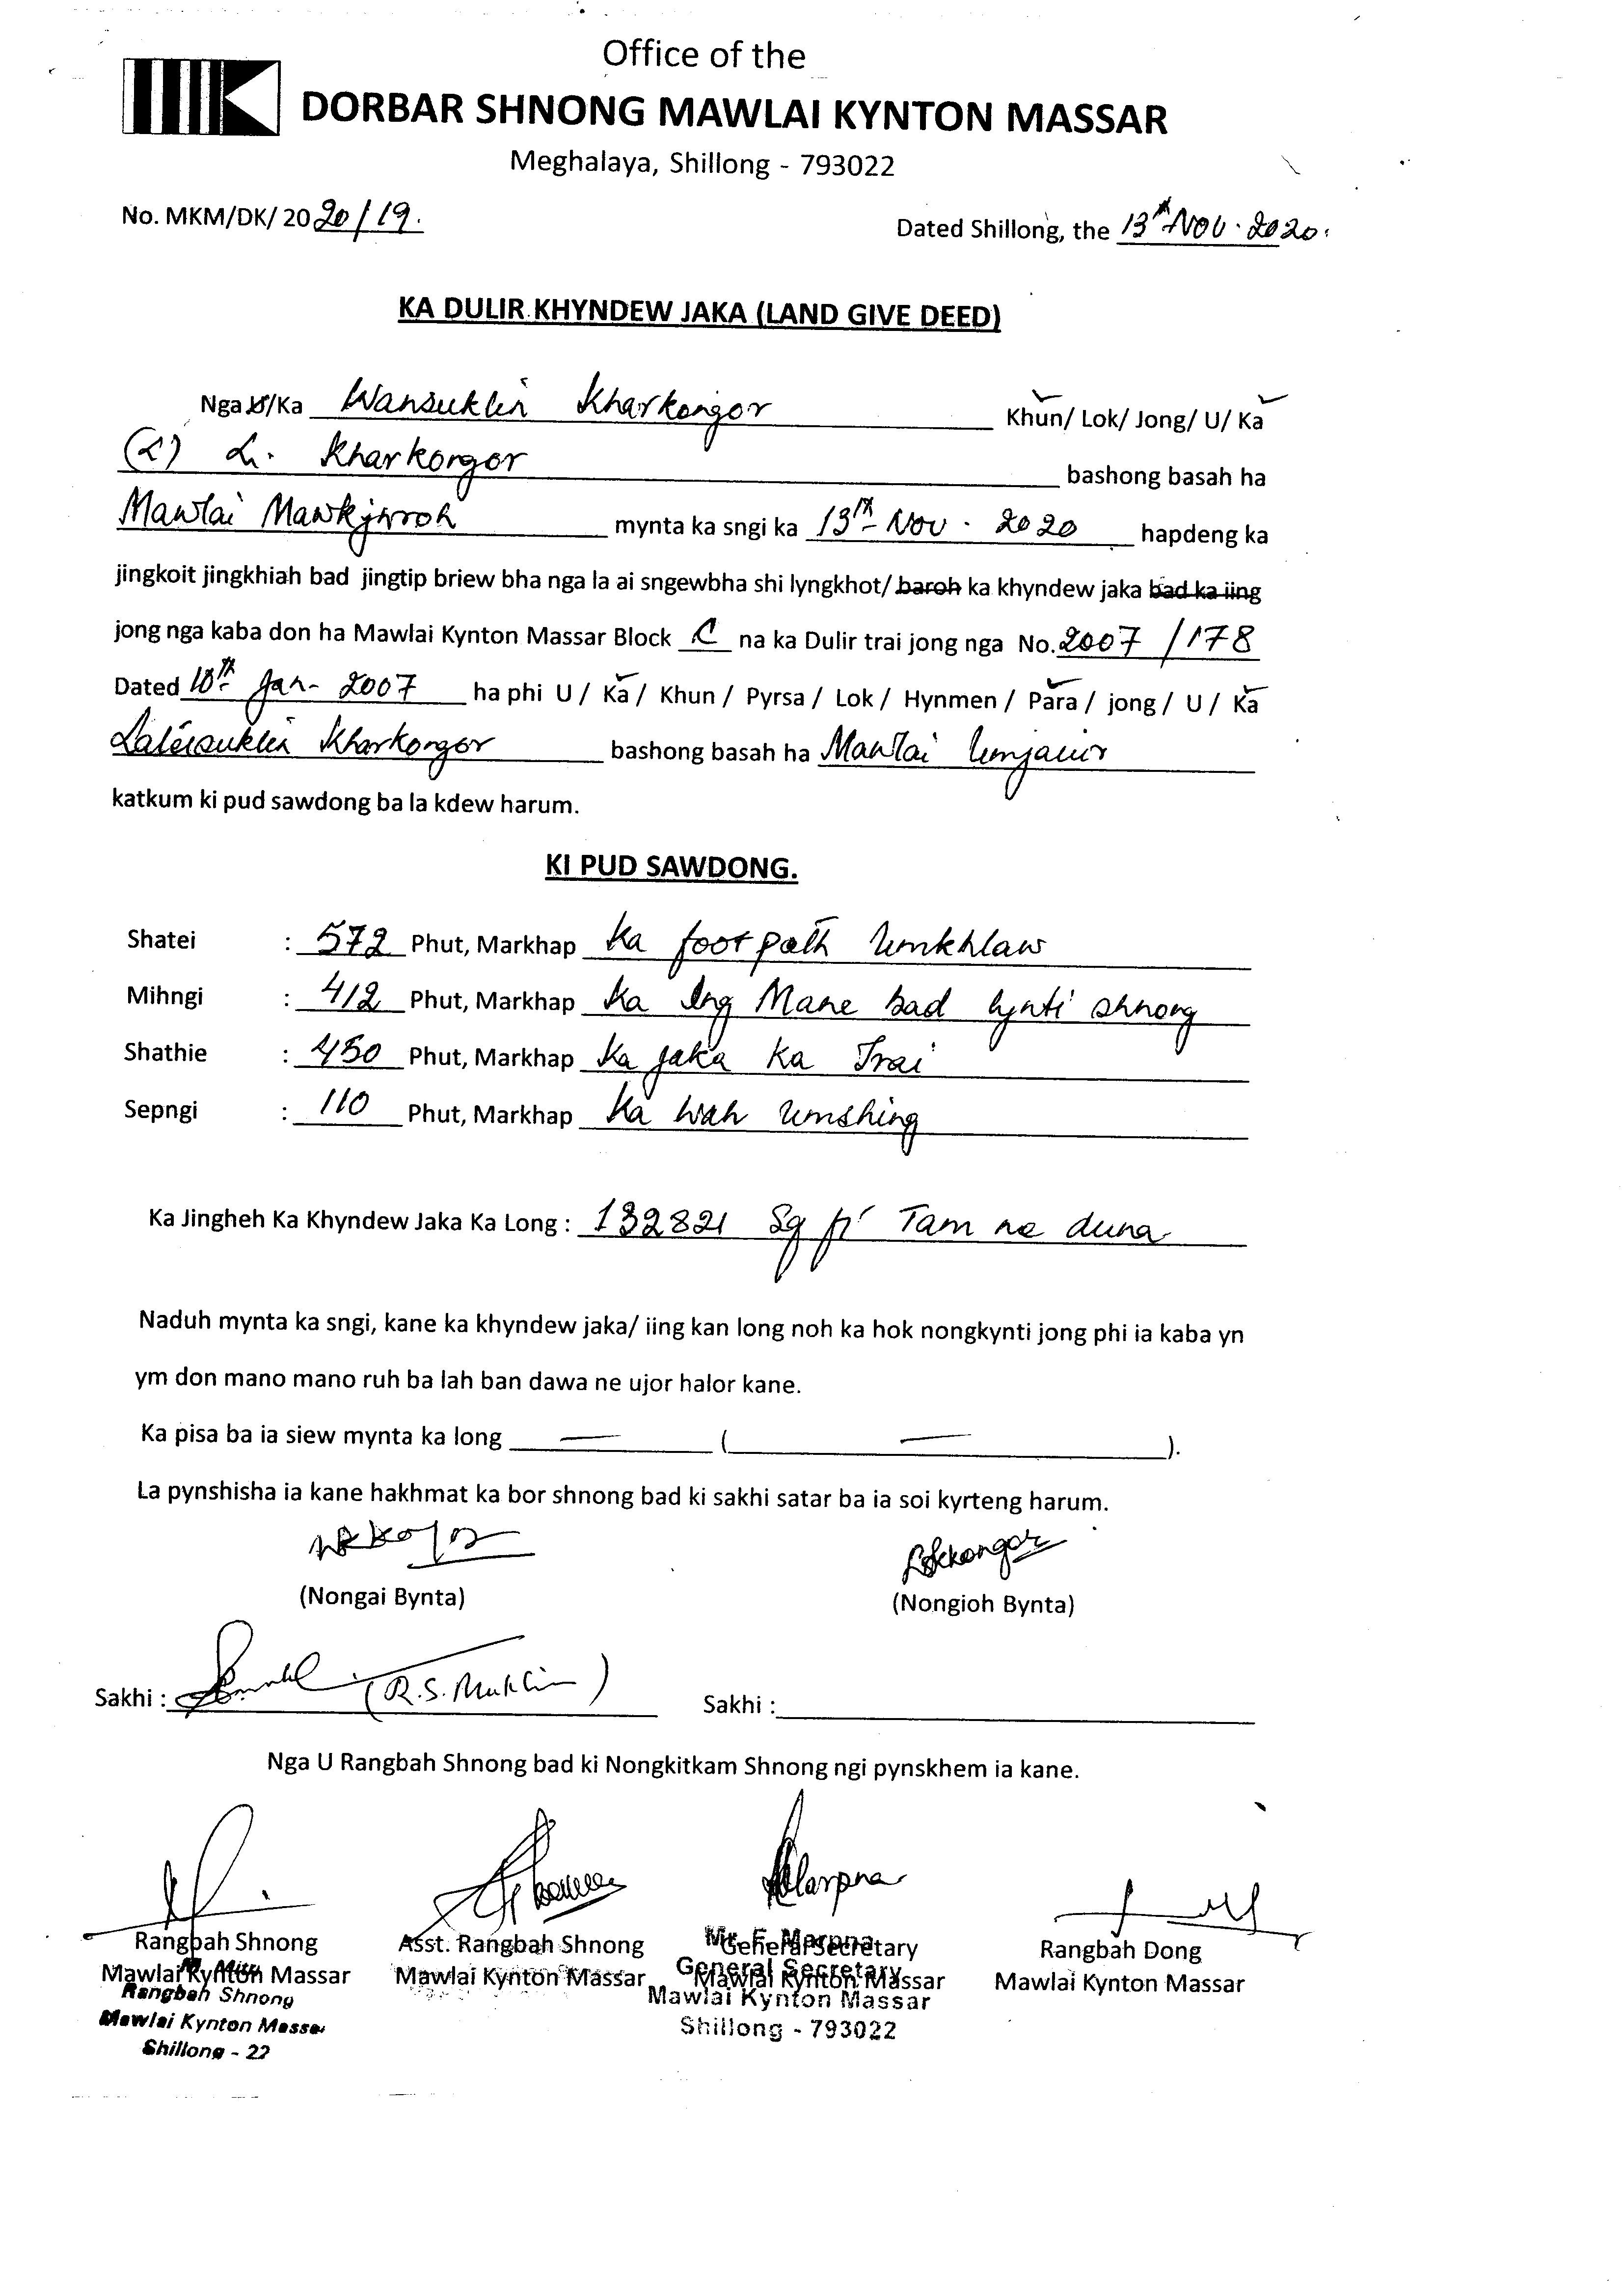 Office of the
DORBAR SHNONG MAWLAI KYNTON MASSAR
Meghalaya, Shillong - 793022
No. MKM/DK/ 2020/19. Dated Shillong, the 13th Nov. 2020.
KA DULIR KHYNDEW JAKA (LAND GIVE DEED)
Nga U/Ka Wansuklin Kharkongor Khun/ Lok/ Jong/ U/ Ka
(L) L. Kharkongor bashong basah ha
Mawlai Mawkjnroh mynta ka sngi ka 13th Nov. 2020 hapdeng ka
jingkoit jingkhiah bad jingtip briew bha nga la ai sngewbha shi lyngkhot/ baroh ka khyndew jaka bad ka iing
jong nga kaba don ha Mawlai Kynton Massar Block C na ka Dulir trai jong nga No. 2007/178
Dated 10th Jan- 2007 ha phi U / Ka / Khun / Pyrsa / Lok / Hynmen / Para / jong / U / Ka
Kharkongor bashong basah ha Mawlai Umjaiur
katkum ki pud sawdong ba la kdew harum.
KI PUD SAWDONG.
Shatei : 572 Phut, Markhap Ka footpath Umkhlaw
Mihngi : 412 Phut, Markhap Ka Ing Mane bad lynti shnong
Shathie : 450 Phut, Markhap Ka jaka ka Trai
Sepngi : 110 Phut, Markhap Ka wah Umshing
Ka Jingheh Ka Khyndew Jaka Ka Long : 132821 Sq ft Tam ne duna
Naduh mynta ka sngi, kane ka khyndew jaka/ iing kan long noh ka hok nongkynti jong phi ia kaba yn
ym don mano mano ruh ba lah ban dawa ne ujor halor kane.
Ka pisa ba ia siew mynta ka long — ( — ).
La pynshisha ia kane hakhmat ka bor shnong bad ki sakhi satar ba ia soi kyrteng harum.
(Nongai Bynta) (Nongioh Bynta)
Sakhi : (R.S. Mukhim) Sakhi :
Nga U Rangbah Shnong bad ki Nongkitkam Shnong ngi pynskhem ia kane.
Rangbah Shnong Asst. Rangbah Shnong General Secretary Rangbah Dong
Mawlai Kynton Massar Mawlai Kynton Massar Mawlai Kynton Massar Mawlai Kynton Massar
Mr. F. Marpna
General Secretary
Mawlai Kynton Massar
Shillong - 793022
Rangbah Shnong
Mawlai Kynton Massar
Shillong - 22